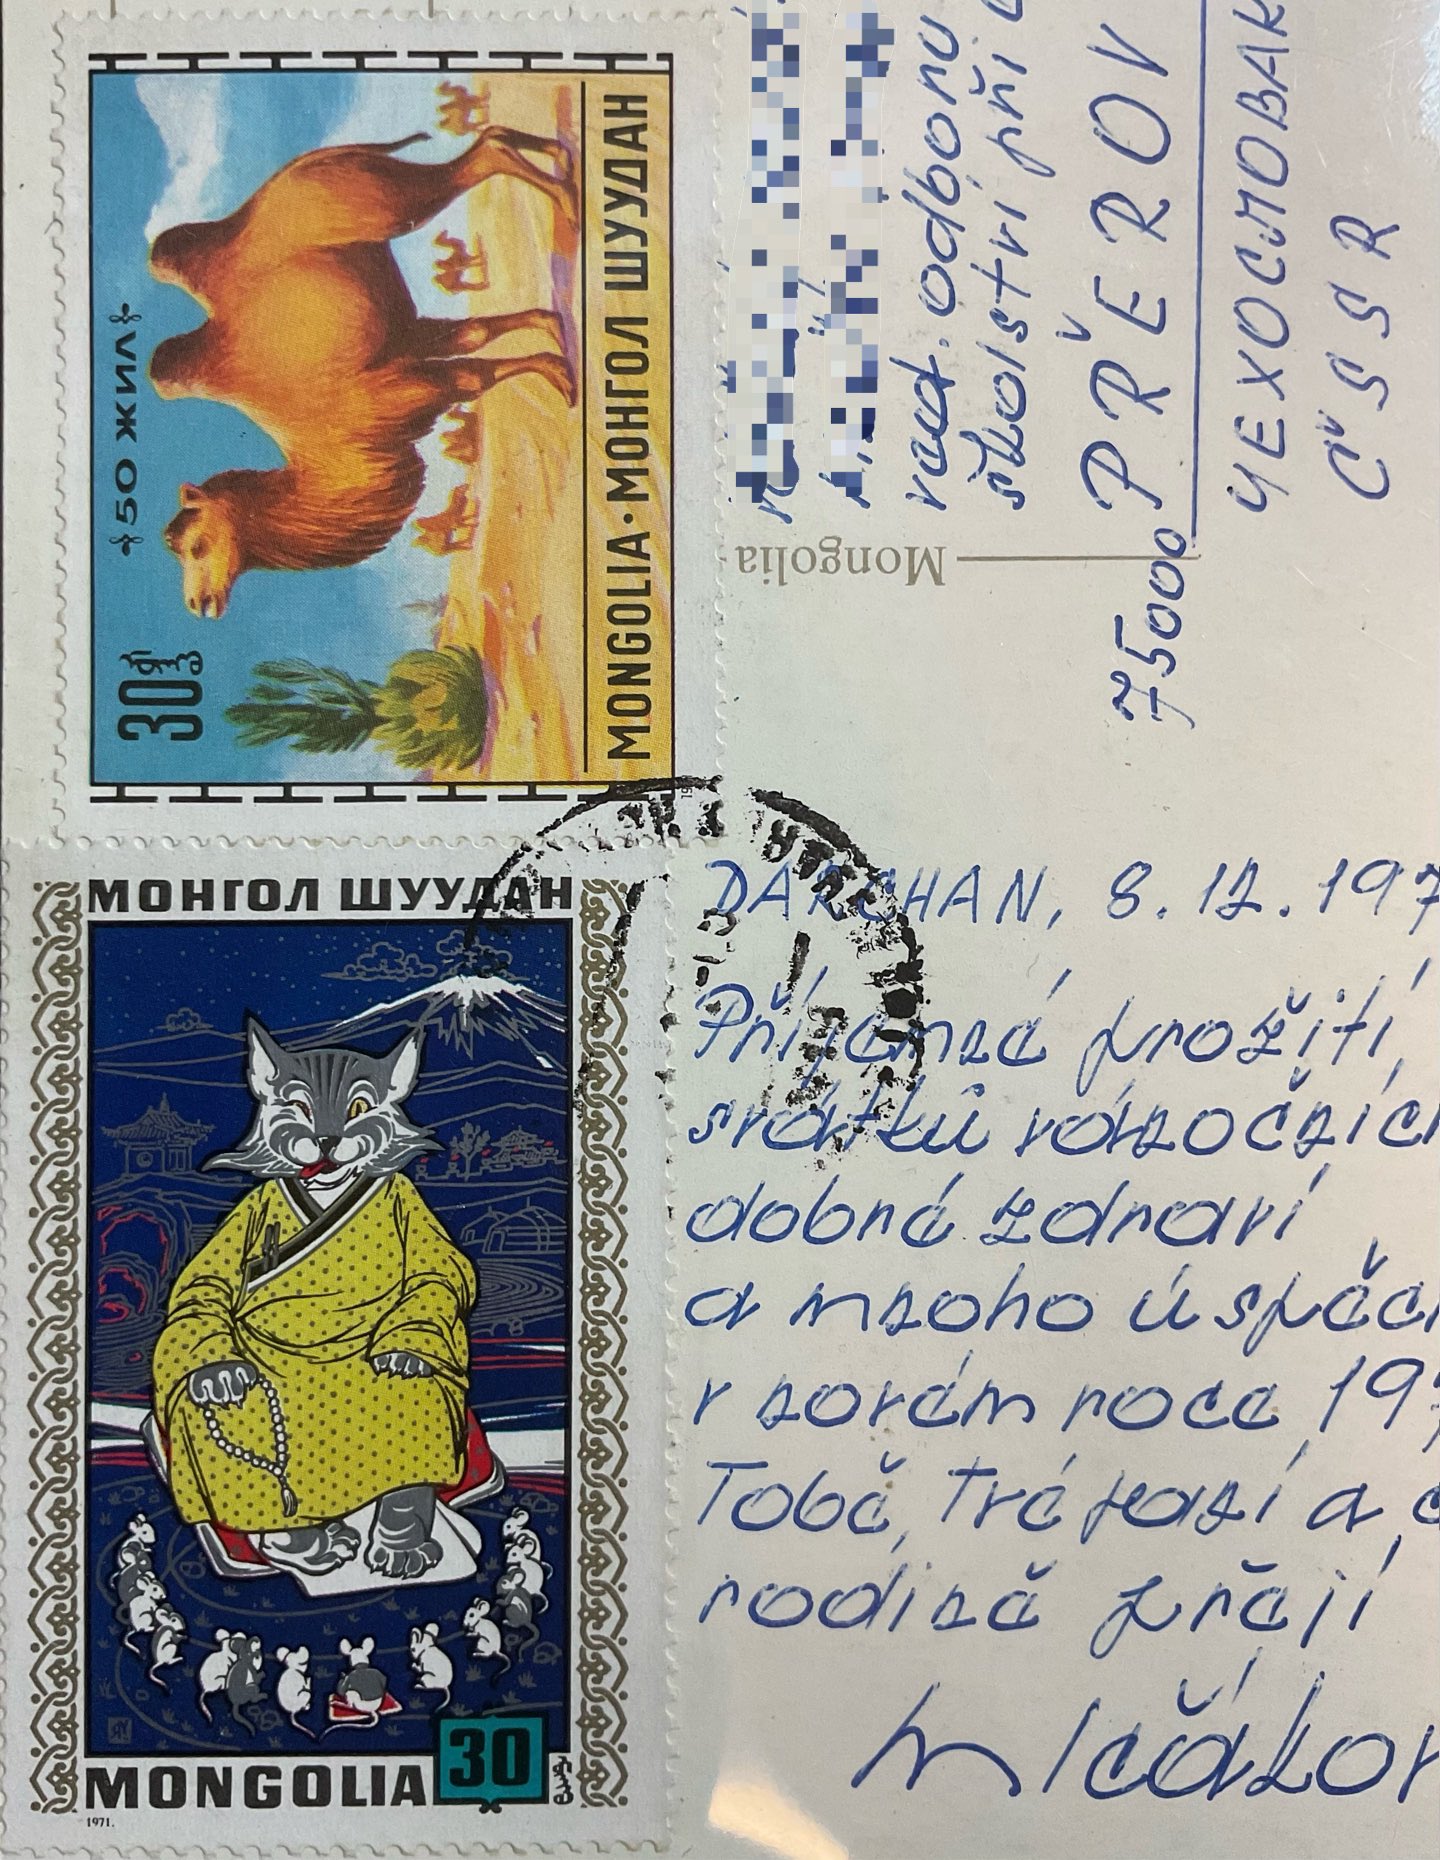 50 ЖИЛ
30
MONGOLIA · МОНГОЛ ШУУДАН
МОНГОЛ ШУУДАН
MONGOLIA
30
1971.
Mongolia
ved. odboru
školství při
75000 PŘEROV
ЧЕХОСЛОВАК
ČSSR
DARCHAN, 8.12.197
Příjemné prožití
svátků vánočních
dobré zdraví
a mnoho úspěch
v novém roce 197
Tobě, Tvé paní a
rodině přejí